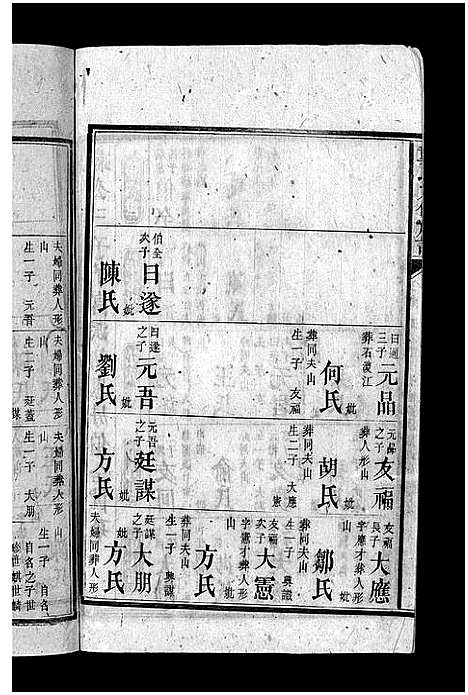 曰遜
三子
元品
葬石茭江
妣
何氏
葬同夫山
生一子 友福
元品
之子
友福
葬人形山
妣
胡氏
葬同夫山
生二子 大應
憲
友福
長子
大應
字應才葬人形
山
妣
鄒氏
葬同夫山
生一子 興識
友福
次子
大憲
字憲才葬人形
山
妣
方氏
葬同夫山
生一子 興謀
伯全
次子
曰遂
妣
陳氏
曰遂
之子
元吾
妣
劉氏
元吾
之子
廷謀
妣
方氏
廷謀
之子
大朋
妣
方氏
夫婦同葬人形
夫婦同葬人形
山
生一子 元吾
夫婦同葬人形
山
生二子 廷蓋
謀
夫婦同葬人形
山
生一子 大朋
山
生一子 自名
自名之子世